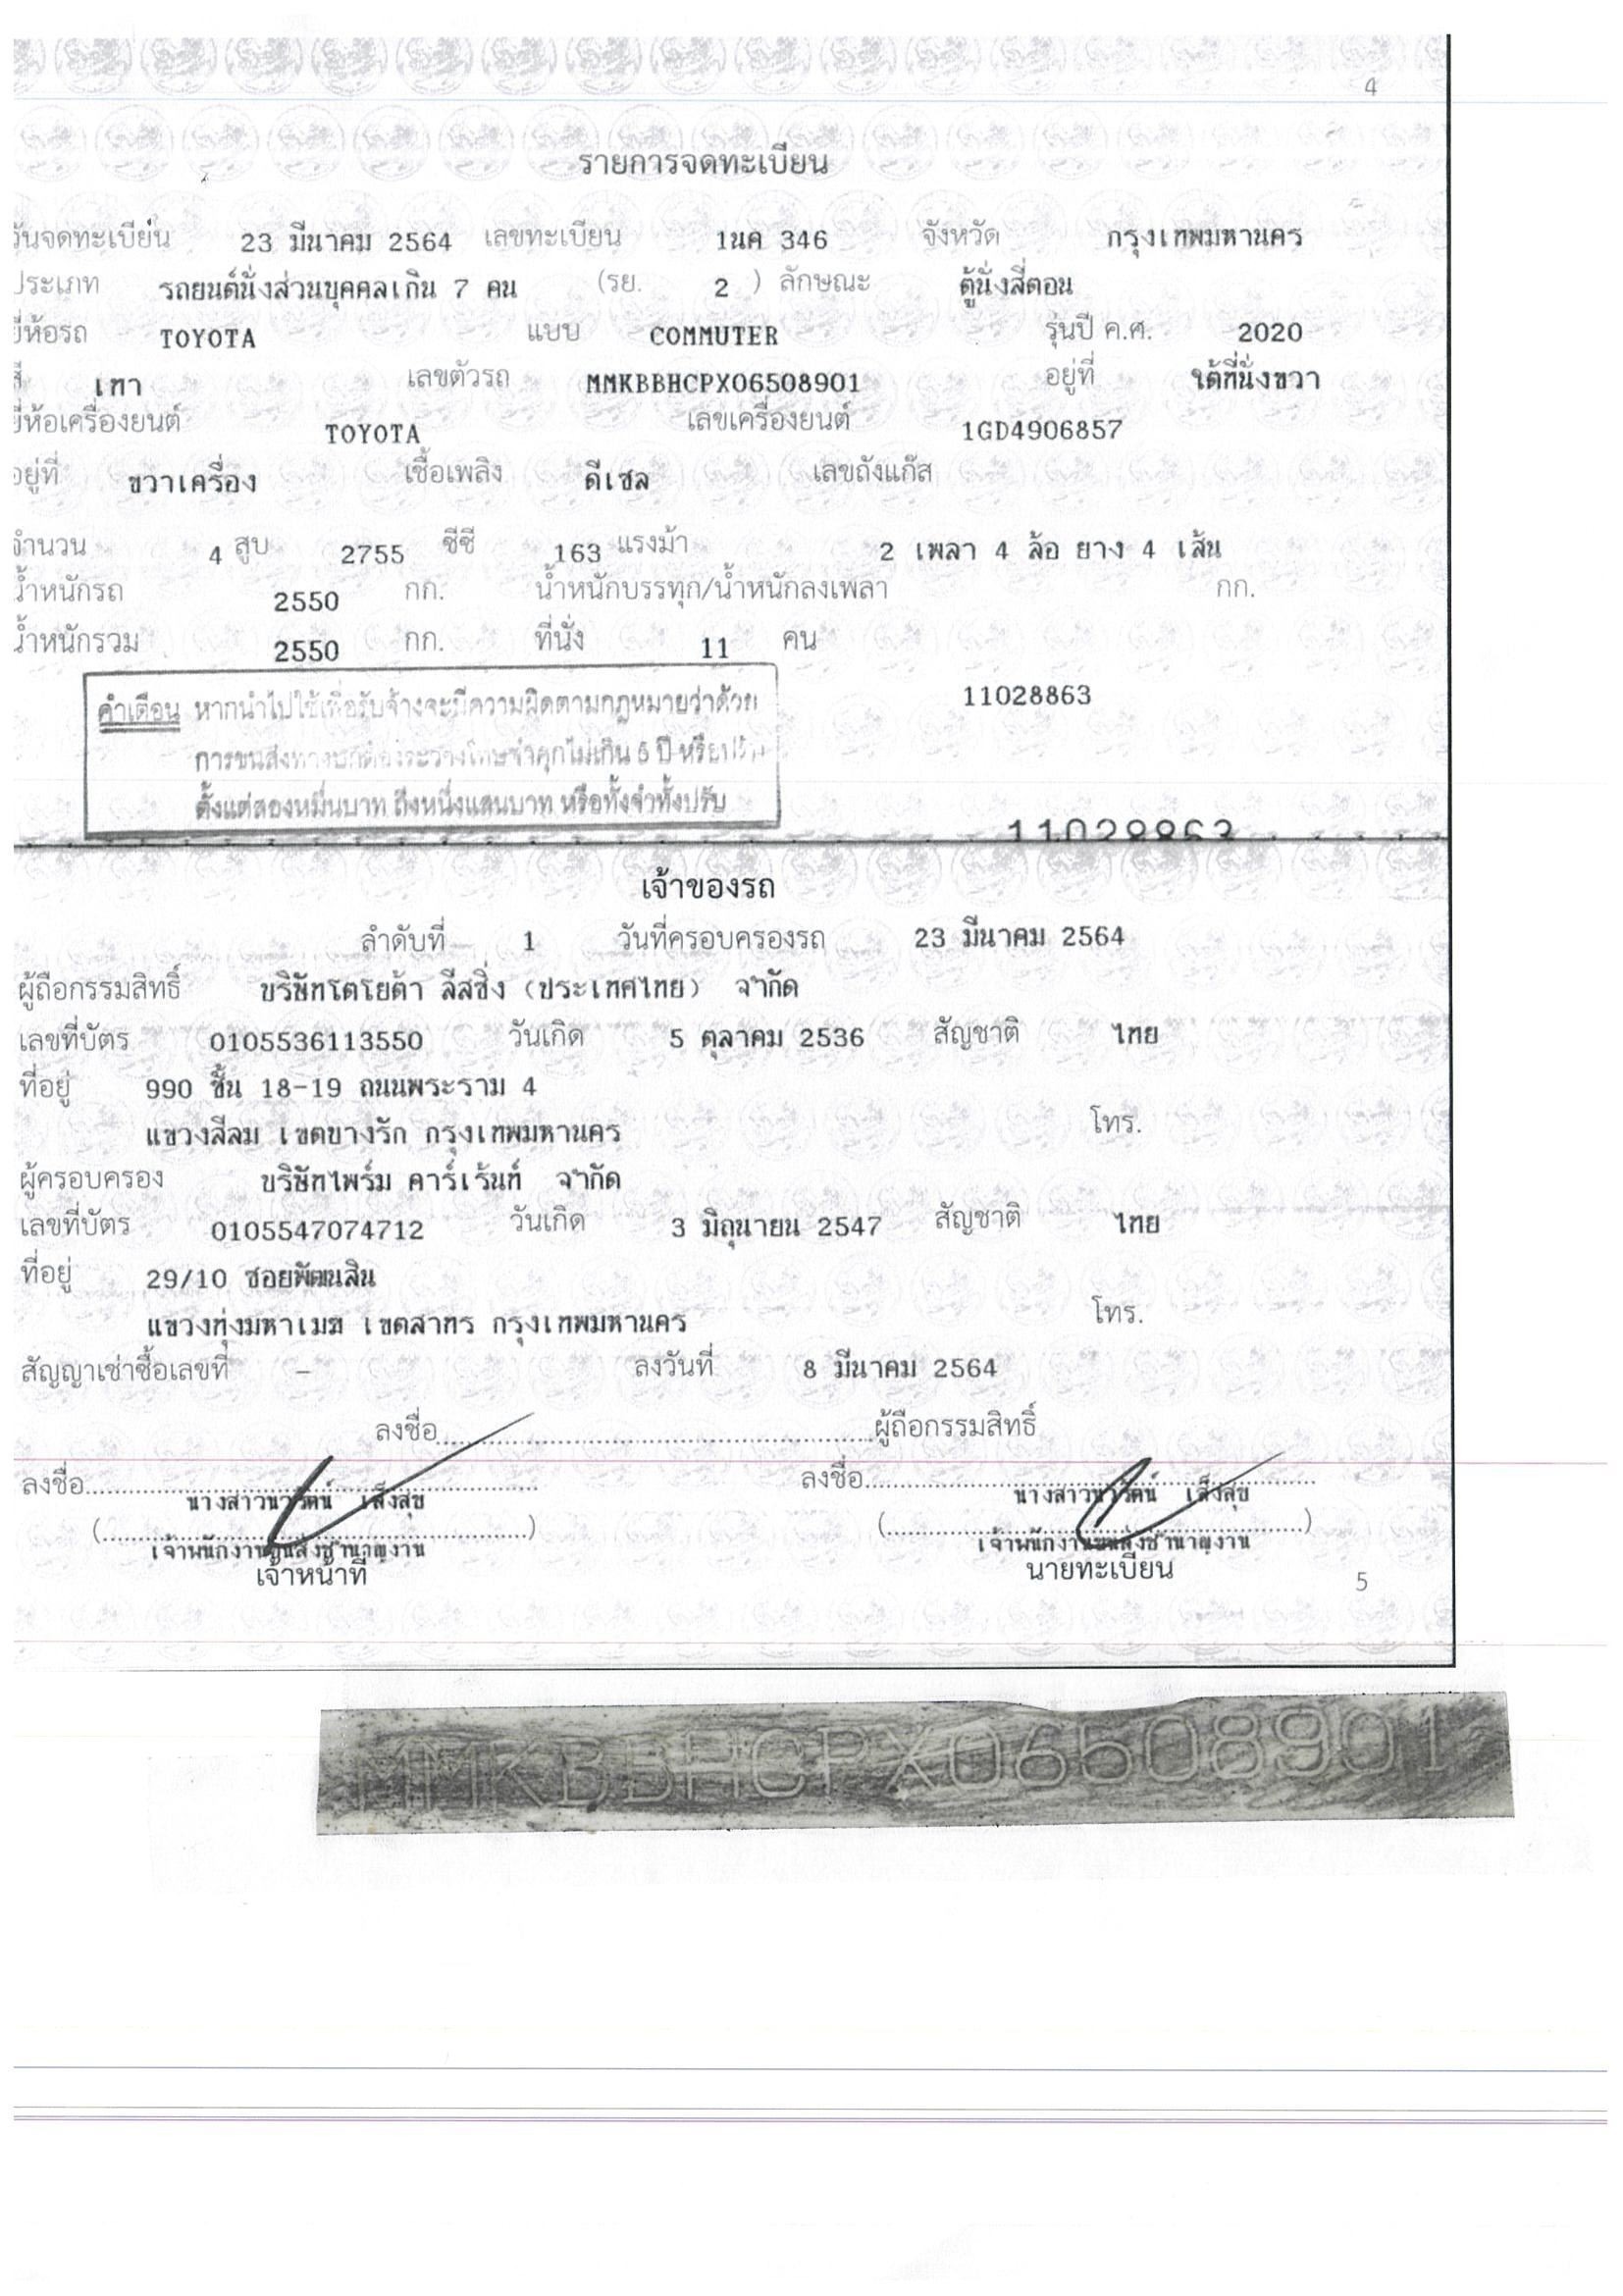 4
รายการจดทะเบียน
วันจดทะเบียน 23 มีนาคม 2564 เลขทะเบียน 1นค 346 จังหวัด กรุงเทพมหานคร
ประเภท รถยนต์นั่งส่วนบุคคลเกิน 7 คน (รย. 2 ) ลักษณะ ตู้นั่งสี่ตอน
ยี่ห้อรถ TOYOTA แบบ COMMUTER รุ่นปี ค.ศ. 2020
สี เทา เลขตัวรถ MMKBBHCPX06508901 อยู่ที่ ใต้ที่นั่งขวา
ยี่ห้อเครื่องยนต์ TOYOTA เลขเครื่องยนต์ 1GD4906857
อยู่ที่ ขวาเครื่อง เชื้อเพลิง ดีเซล เลขถังแก๊ส
จำนวน 4 สูบ 2755 ซีซี 163 แรงม้า 2 เพลา 4 ล้อ ยาง 4 เส้น
น้ำหนักรถ 2550 กก. น้ำหนักบรรทุก/น้ำหนักลงเพลา กก.
น้ำหนักรวม 2550 กก. ที่นั่ง 11 คน
คำเตือน หากนำไปใช้เพื่อรับจ้างจะมีความผิดตามกฎหมายว่าด้วย
การขนส่งทางบกต้องระวางโทษจำคุกไม่เกิน 5 ปี หรือปรับ
ตั้งแต่สองหมื่นบาท ถึงหนึ่งแสนบาท หรือทั้งจำทั้งปรับ
11028863
11028863
เจ้าของรถ
ลำดับที่ 1 วันที่ครอบครองรถ 23 มีนาคม 2564
ผู้ถือกรรมสิทธิ์ บริษัทโตโยต้า ลีสซิ่ง (ประเทศไทย) จำกัด
เลขที่บัตร 0105536113550 วันเกิด 5 ตุลาคม 2536 สัญชาติ ไทย
ที่อยู่ 990 ชั้น 18-19 ถนนพระราม 4
แขวงสีลม เขตบางรัก กรุงเทพมหานคร โทร.
ผู้ครอบครอง บริษัทไพร์ม คาร์เร้นท์ จำกัด
เลขที่บัตร 0105547074712 วันเกิด 3 มิถุนายน 2547 สัญชาติ ไทย
ที่อยู่ 29/10 ซอยพัฒนสิน
แขวงทุ่งมหาเมฆ เขตสาทร กรุงเทพมหานคร โทร.
สัญญาเช่าซื้อเลขที่ - ลงวันที่ 8 มีนาคม 2564
ลงชื่อ ผู้ถือกรรมสิทธิ์
ลงชื่อ ลงชื่อ
นางสาว เส็งสุข นางสาว เส็งสุข
เจ้าพนักงานขนส่งชำนาญงาน เจ้าพนักงานขนส่งชำนาญงาน
เจ้าหน้าที่ นายทะเบียน
5
MMKBBHCPX06508901